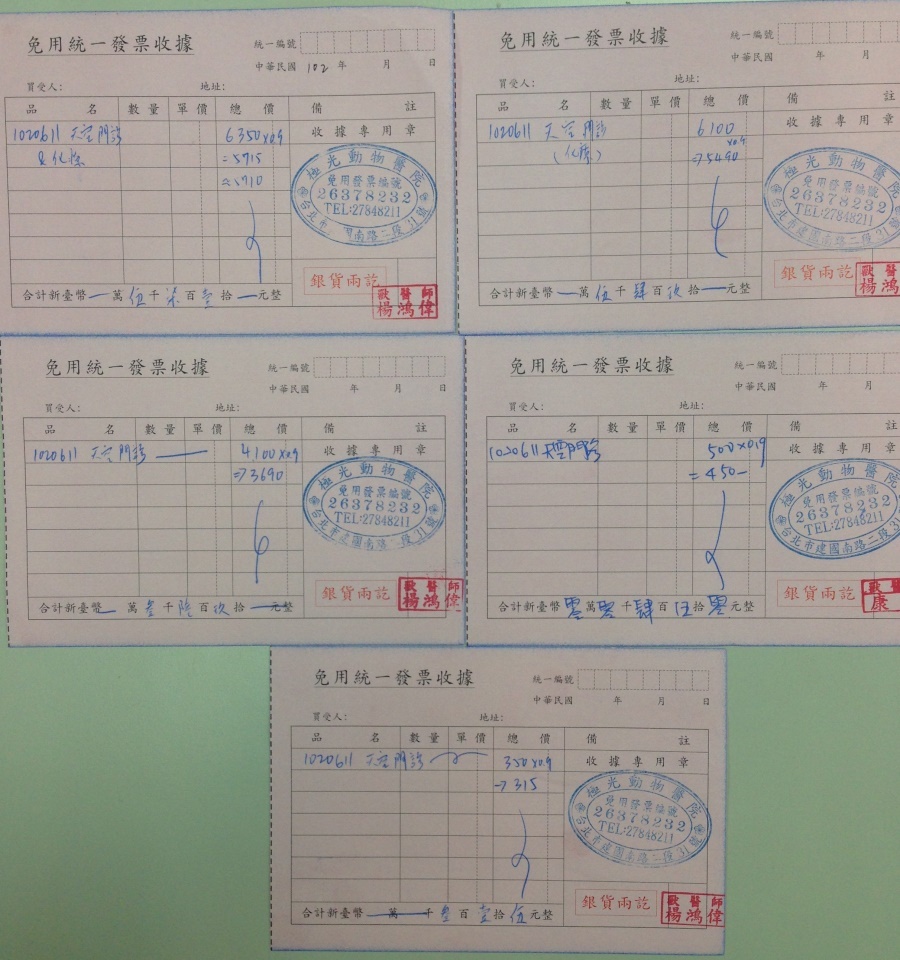 免用統一發票收據
統一編號
中華民國 102 年 月 日
買受人: 地址:
品 名 數量 單價 總 價 備 註
1020611 天空門診 6350x0.9 收據專用章
& 化療 =5715
≈5710
極光動物醫院
免用發票編號
26378232
TEL:27848211
銀貨兩訖
合計新臺幣 一 萬 伍 千 柒 百 壹 拾 一 元整
獸醫師
楊鴻偉
免用統一發票收據
統一編號
中華民國 年 月 日
買受人: 地址:
品 名 數量 單價 總 價 備 註
1020611 天空門診 6100 收據專用章
(化療) x0.9
⇒5490
極光動物醫院
免用發票編號
26378232
TEL:27848211
台北市建國南路二段31號
銀貨兩訖
合計新臺幣 一 萬 伍 千 肆 百 玖 拾 一 元整
獸醫
楊鴻
免用統一發票收據
統一編號
中華民國 年 月 日
買受人: 地址:
品 名 數量 單價 總 價 備 註
1020611 天空門診 4100x0.9 收據專用章
⇒3690
極光動物醫院
免用發票編號
26378232
TEL:27848211
台北市建國南路二段31號
銀貨兩訖
合計新臺幣 一 萬 參 千 陸 百 玖 拾 一 元整
獸醫師
楊鴻偉
免用統一發票收據
統一編號
中華民國 年 月 日
買受人: 地址:
品 名 數量 單價 總 價 備 註
1020611 天空門診 500x0.9 收據專用章
=450-
極光動物醫院
免用發票編號
26378232
TEL:27848211
台北市建國南路二段31
銀貨兩訖
合計新臺幣 零 萬 零 千 肆 百 伍 拾 零 元整
獸醫
康
免用統一發票收據
統一編號
中華民國 年 月 日
買受人: 地址:
品 名 數量 單價 總 價 備 註
1020611 天空門診 350x0.9 收據專用章
→315
極光動物醫院
免用發票編號
26378232
TEL:27848211
台北市建國南路二段31號
銀貨兩訖
合計新臺幣 一 萬 一 千 參 百 壹 拾 伍 元整
獸醫師
楊鴻偉